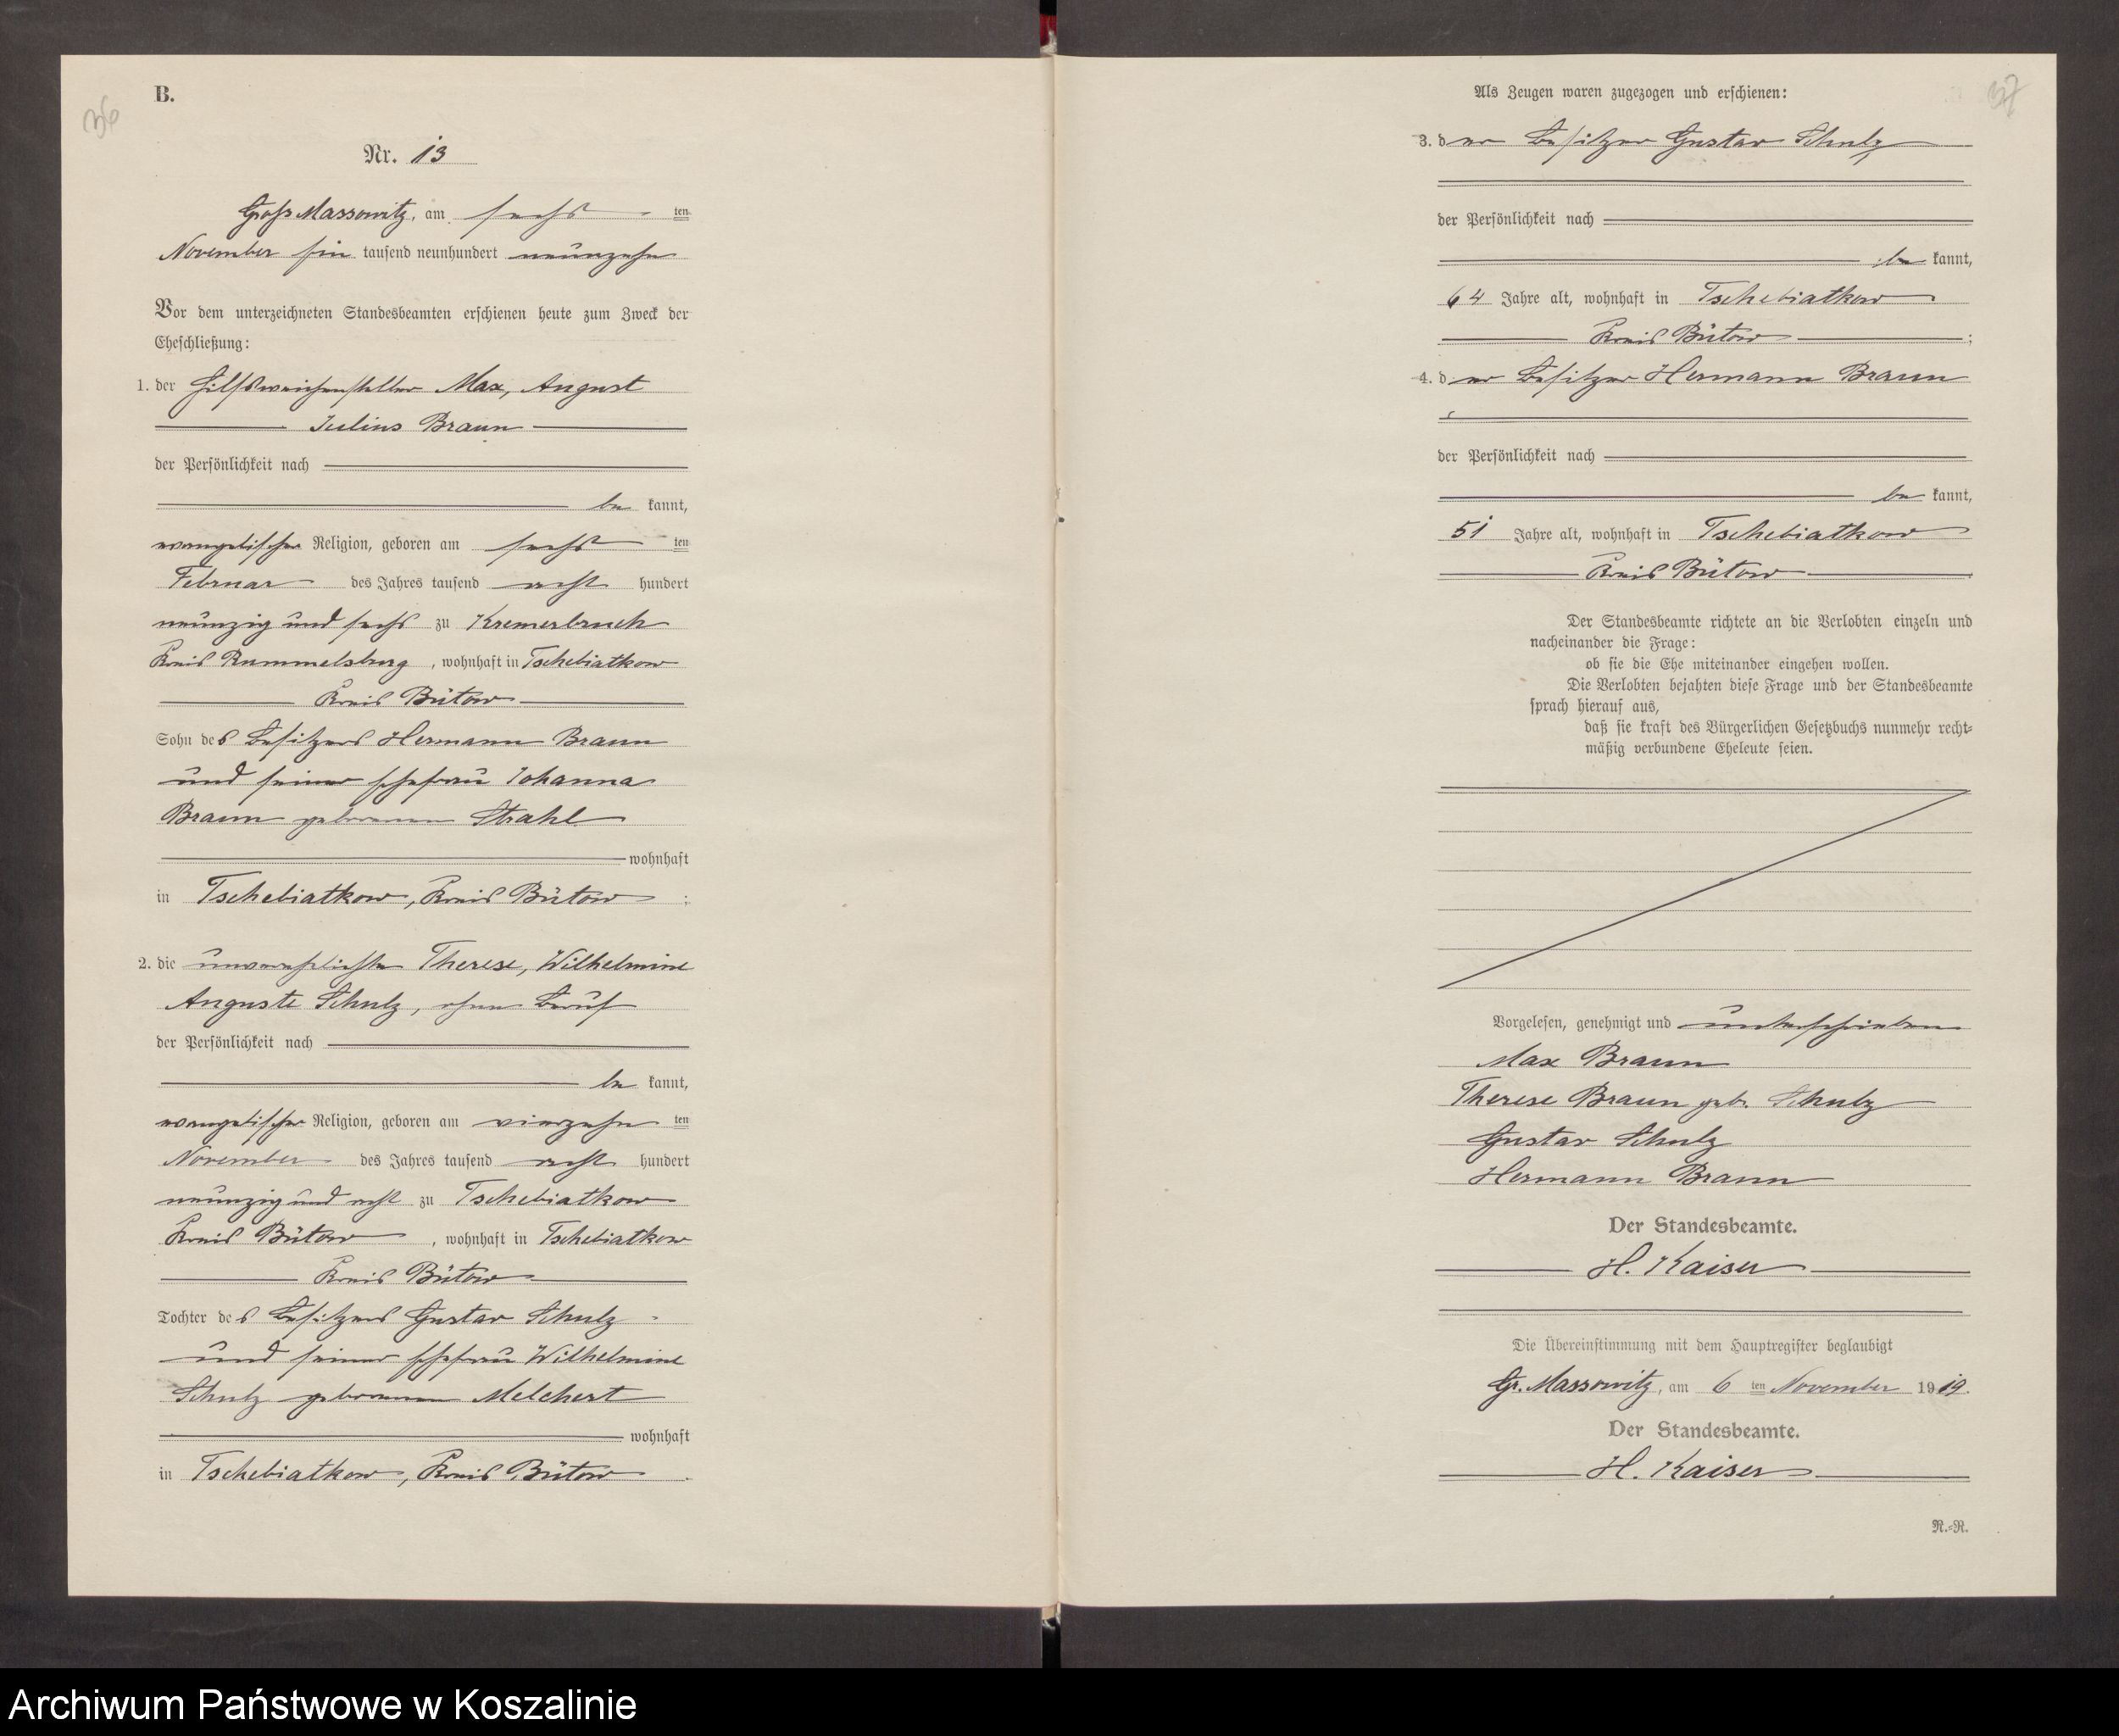 36
B.
Nr. 13
Groß Massowitz, am sechsten
November ein tausend neunhundert neunzehn
Vor dem unterzeichneten Standesbeamten erschienen heute zum Zweck der
Eheschließung:
1. der Hilfsweichensteller Max, August
Julius Braun
der Persönlichkeit nach
be kannt,
evangelischer Religion, geboren am sechsten
Februar des Jahres tausend acht hundert
neunzig und sechs zu Kremerbruch
Kreis Rummelsburg, wohnhaft in Tschebiatkow
Kreis Bütow
Sohn des Besitzers Hermann Braun
und seiner Ehefrau Johanna
Braun geborenen Strahl
wohnhaft
in Tschebiatkow, Kreis Bütow ;
2. die unverehelichte Therese, Wilhelmine
Auguste Schulz, ohne Beruf
der Persönlichkeit nach
be kannt,
evangelischer Religion, geboren am vierzehnten
November des Jahres tausend acht hundert
neunzig und acht zu Tschebiatkow
Kreis Bütow, wohnhaft in Tschebiatkow
Kreis Bütow
Tochter des Besitzers Gustav Schulz
und seiner Ehefrau Wilhelmine
Schulz geborenen Melchert
wohnhaft
in Tschebiatkow, Kreis Bütow .
37
Als Zeugen waren zugezogen und erschienen:
3. der Besitzer Gustav Schulz
der Persönlichkeit nach
be kannt,
64 Jahre alt, wohnhaft in Tschebiatkow
Kreis Bütow ;
4. der Besitzer Hermann Braun
der Persönlichkeit nach
be kannt,
51 Jahre alt, wohnhaft in Tschebiatkow
Kreis Bütow .
Der Standesbeamte richtete an die Verlobten einzeln und
nacheinander die Frage:
ob sie die Ehe miteinander eingehen wollen.
Die Verlobten bejahten diese Frage und der Standesbeamte
sprach hierauf aus,
daß sie kraft des Bürgerlichen Gesetzbuchs nunmehr recht-
mäßig verbundene Eheleute seien.
Vorgelesen, genehmigt und unterschrieben
Max Braun
Therese Braun geb. Schulz
Gustav Schulz
Hermann Braun
Der Standesbeamte.
H. Kaiser
Die Übereinstimmung mit dem Hauptregister beglaubigt
Gr. Massowitz, am 6 ten November 1919.
Der Standesbeamte.
H. Kaiser
R.-R.
Archiwum Państwowe w Koszalinie